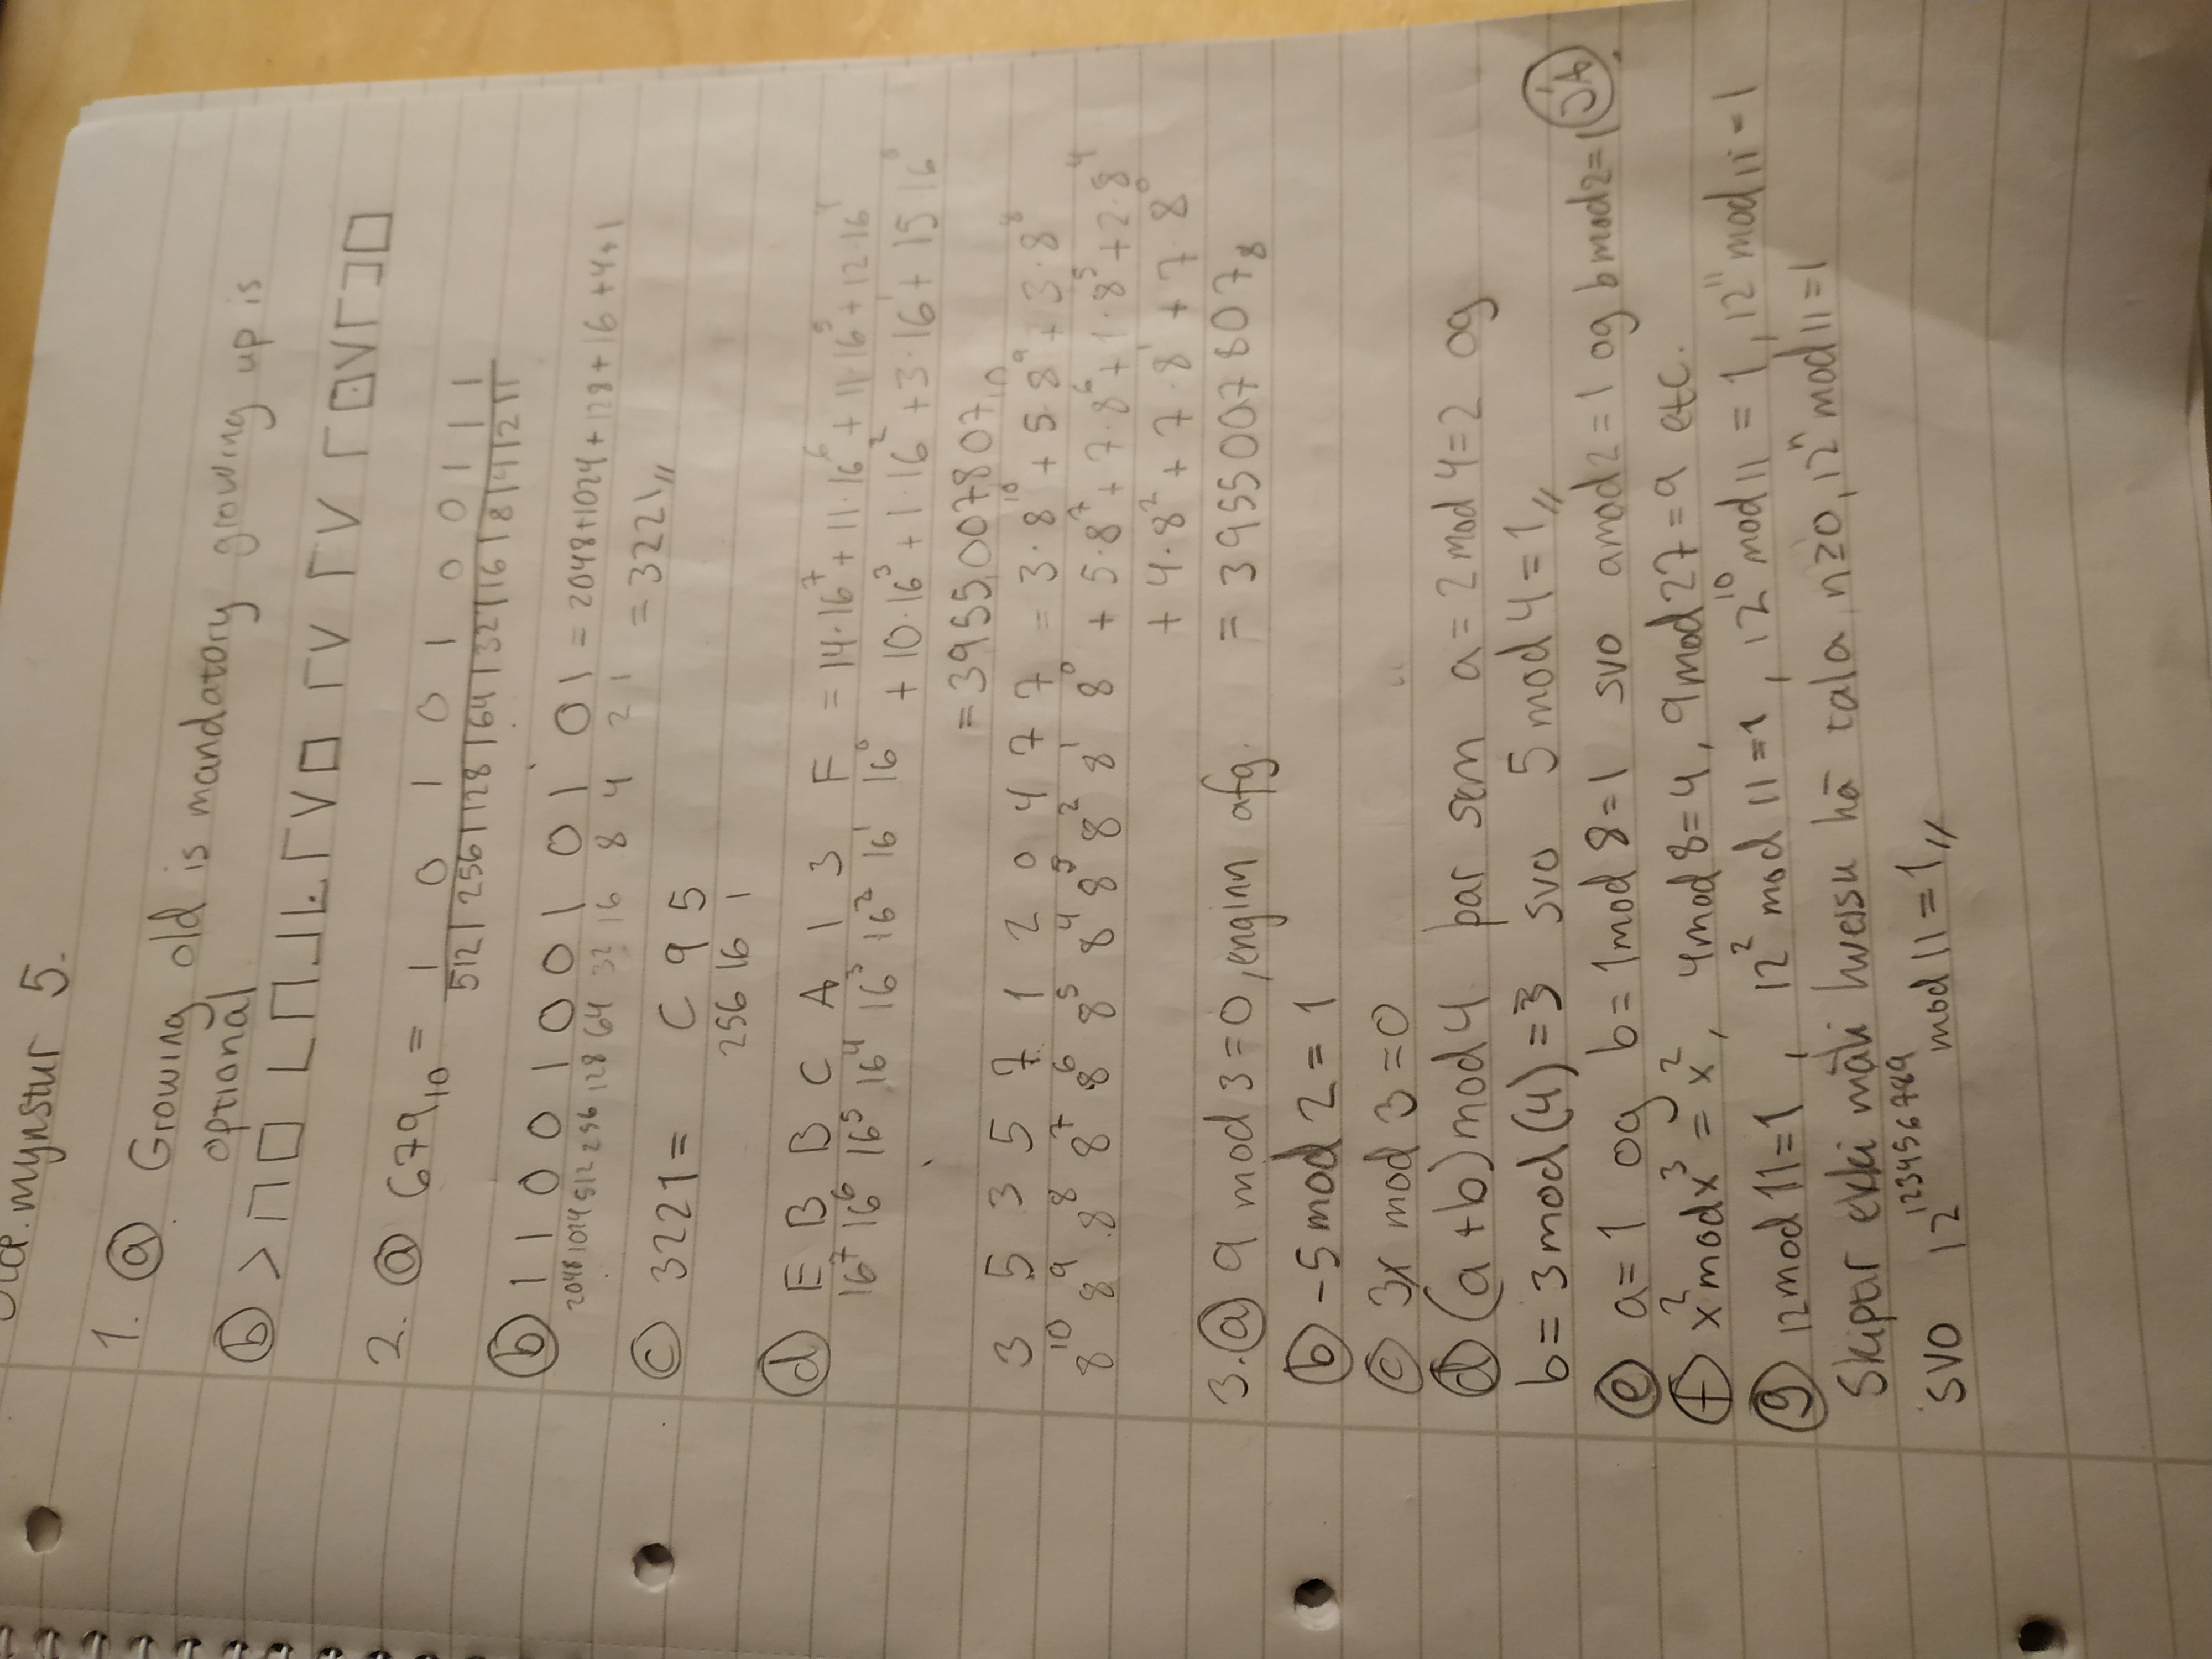 mynstur 5.
1. ⓐ Growing old is mandatory growing up is
optional
ⓑ
2. ⓐ 679₁₀ = 1 0 1 0 1 0 0 1 1 1
512 | 256 | 128 | 64 | 32 | 16 | 8 | 4 | 2 | 1
ⓑ 1 1 0 0 1 0 0 1 0 1 0 1 = 2048+1024+128+16+4+1
2048 1024 512 256 128 64 32 16 8 4 2 1
= 3221//
ⓒ 3221 = C 9 5
256 16 1
ⓓ E B B C A 1 3 F = 14·16⁷ + 11·16⁶ + 11·16⁵ + 12·16⁴
16⁷ 16⁶ 16⁵ 16⁴ 16³ 16² 16¹ 16⁰
+ 10·16³ + 1·16² + 3·16¹ + 15·16⁰
= 3955007807₁₀
3 5 3 5 7 1 2 0 4 7 7 = 3·8¹⁰ + 5·8⁹ + 3·8⁸
8¹⁰ 8⁹ 8⁸ 8⁷ 8⁶ 8⁵ 8⁴ 8³ 8² 8¹ 8⁰ + 5·8⁷ + 7·8⁶ + 1·8⁵ + 2·8⁴
+ 4·8² + 7·8¹ + 7·8⁰
3. ⓐ 9 mod 3 = 0, enginn afg. = 3955007807₈
ⓑ -5 mod 2 = 1
ⓒ 3x mod 3 = 0
ⓓ (a+b) mod 4 þar sem a = 2 mod 4 = 2 og
b = 3 mod (4) = 3 svo 5 mod 4 = 1//
ⓔ a = 1 og b = 1 mod 8 = 1 svo a mod 2 = 1 og b mod 2 = 1 JÁ.
ⓕ x² mod x³ = x², 4 mod 8 = 4, 9 mod 27 = 9 etc.
ⓖ 12 mod 11 = 1, 12² mod 11 = 1, 12¹⁰ mod 11 = 1, 12¹¹ mod 11 = 1
Skiptir ekki máli hversu há tala n ≥ 0, 12ⁿ mod 11 = 1
svo 12¹²³⁴⁵⁶⁷⁸⁹ mod 11 = 1//